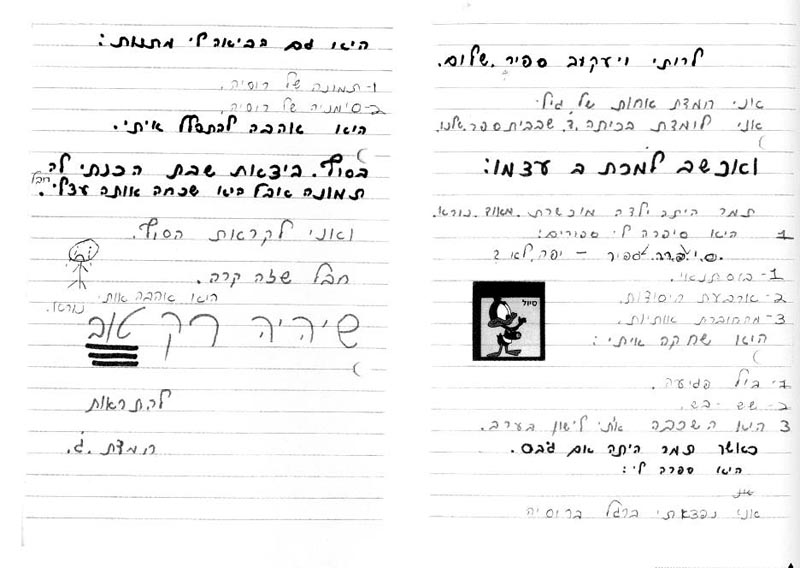 לרותי ויעקב ספיר. שלום.
אני חמדת אחות של גילי
אני לומדת בכיתה .ד. שבבית ספר שלנו.
ואנשב למכת ב עצמו:
תמר היתה ילדה מוכשרת. מאוד. נורא.
1 היא סיפרה לי ספורים:
ס.י.פ.ר.ה. ספיר - יפה, לא ?
1-
2- ארבעת היסודות.
3- מחוברת אותיות.
היא שחקה איתי:
סיול
1- ביל פגיעה.
2- שש - בש.
3 היא השכבה אותי לישון בערב.
כאשר תמר היתה עם גבס.
היא ספרה לי:
אני נפצאתי ברגל ברוסיה
היא גם הביאה לי מתנות:
1- תמונה של רוסיה.
2- סימניה של רוסיה.
היא אהבה להתפלל איתי.
בסוף. ביצאת שבת הכנתי לה
חבל
תמונה אבל היא שכחה אותה עצלי.
ואני לקראת הסוף.
חבל שזה קרה.
היא אהבה אותי נורא.
שיהיה רק טוב
להתראות
חמדת .ג.